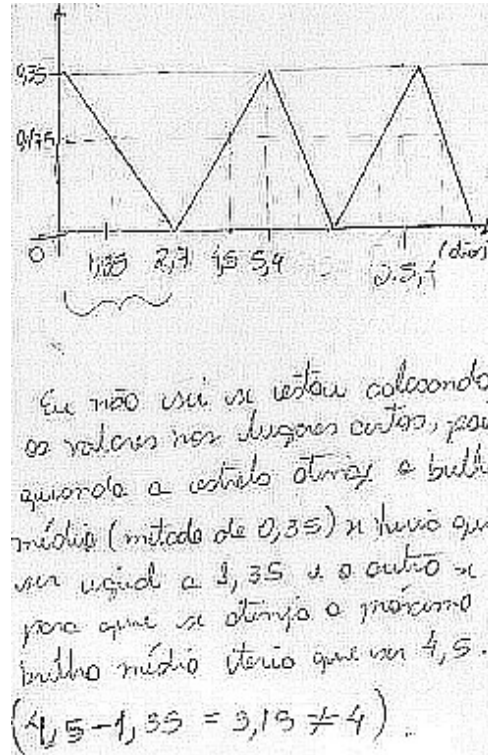 0,35
0,175
0 1,35 2,7 4,5 5,4 2.5,4 (dias)
Eu não sei se estou colocando
os valores nos lugares certos, pois
quando a estrela atinge o brilho
médio (metade de 0,35) x havia que
ser igual a 1,35 e o outro x
para que se atinja o próximo
brilho médio teria que ser 4,5.
(4,5 - 1,35 = 3,15 ≠ 4).